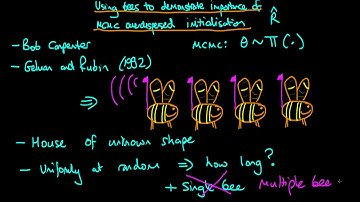 Using bees to demonstrate importance of
MCMC overdispersed initialisation R̂
- Bob Carpenter MCMC: θ ~ π(.)
- Gelman and Rubin (1992)
⇒
- House of unknown shape
- Uniformly at random ⇒ how long?
+ Single bee Multiple bee